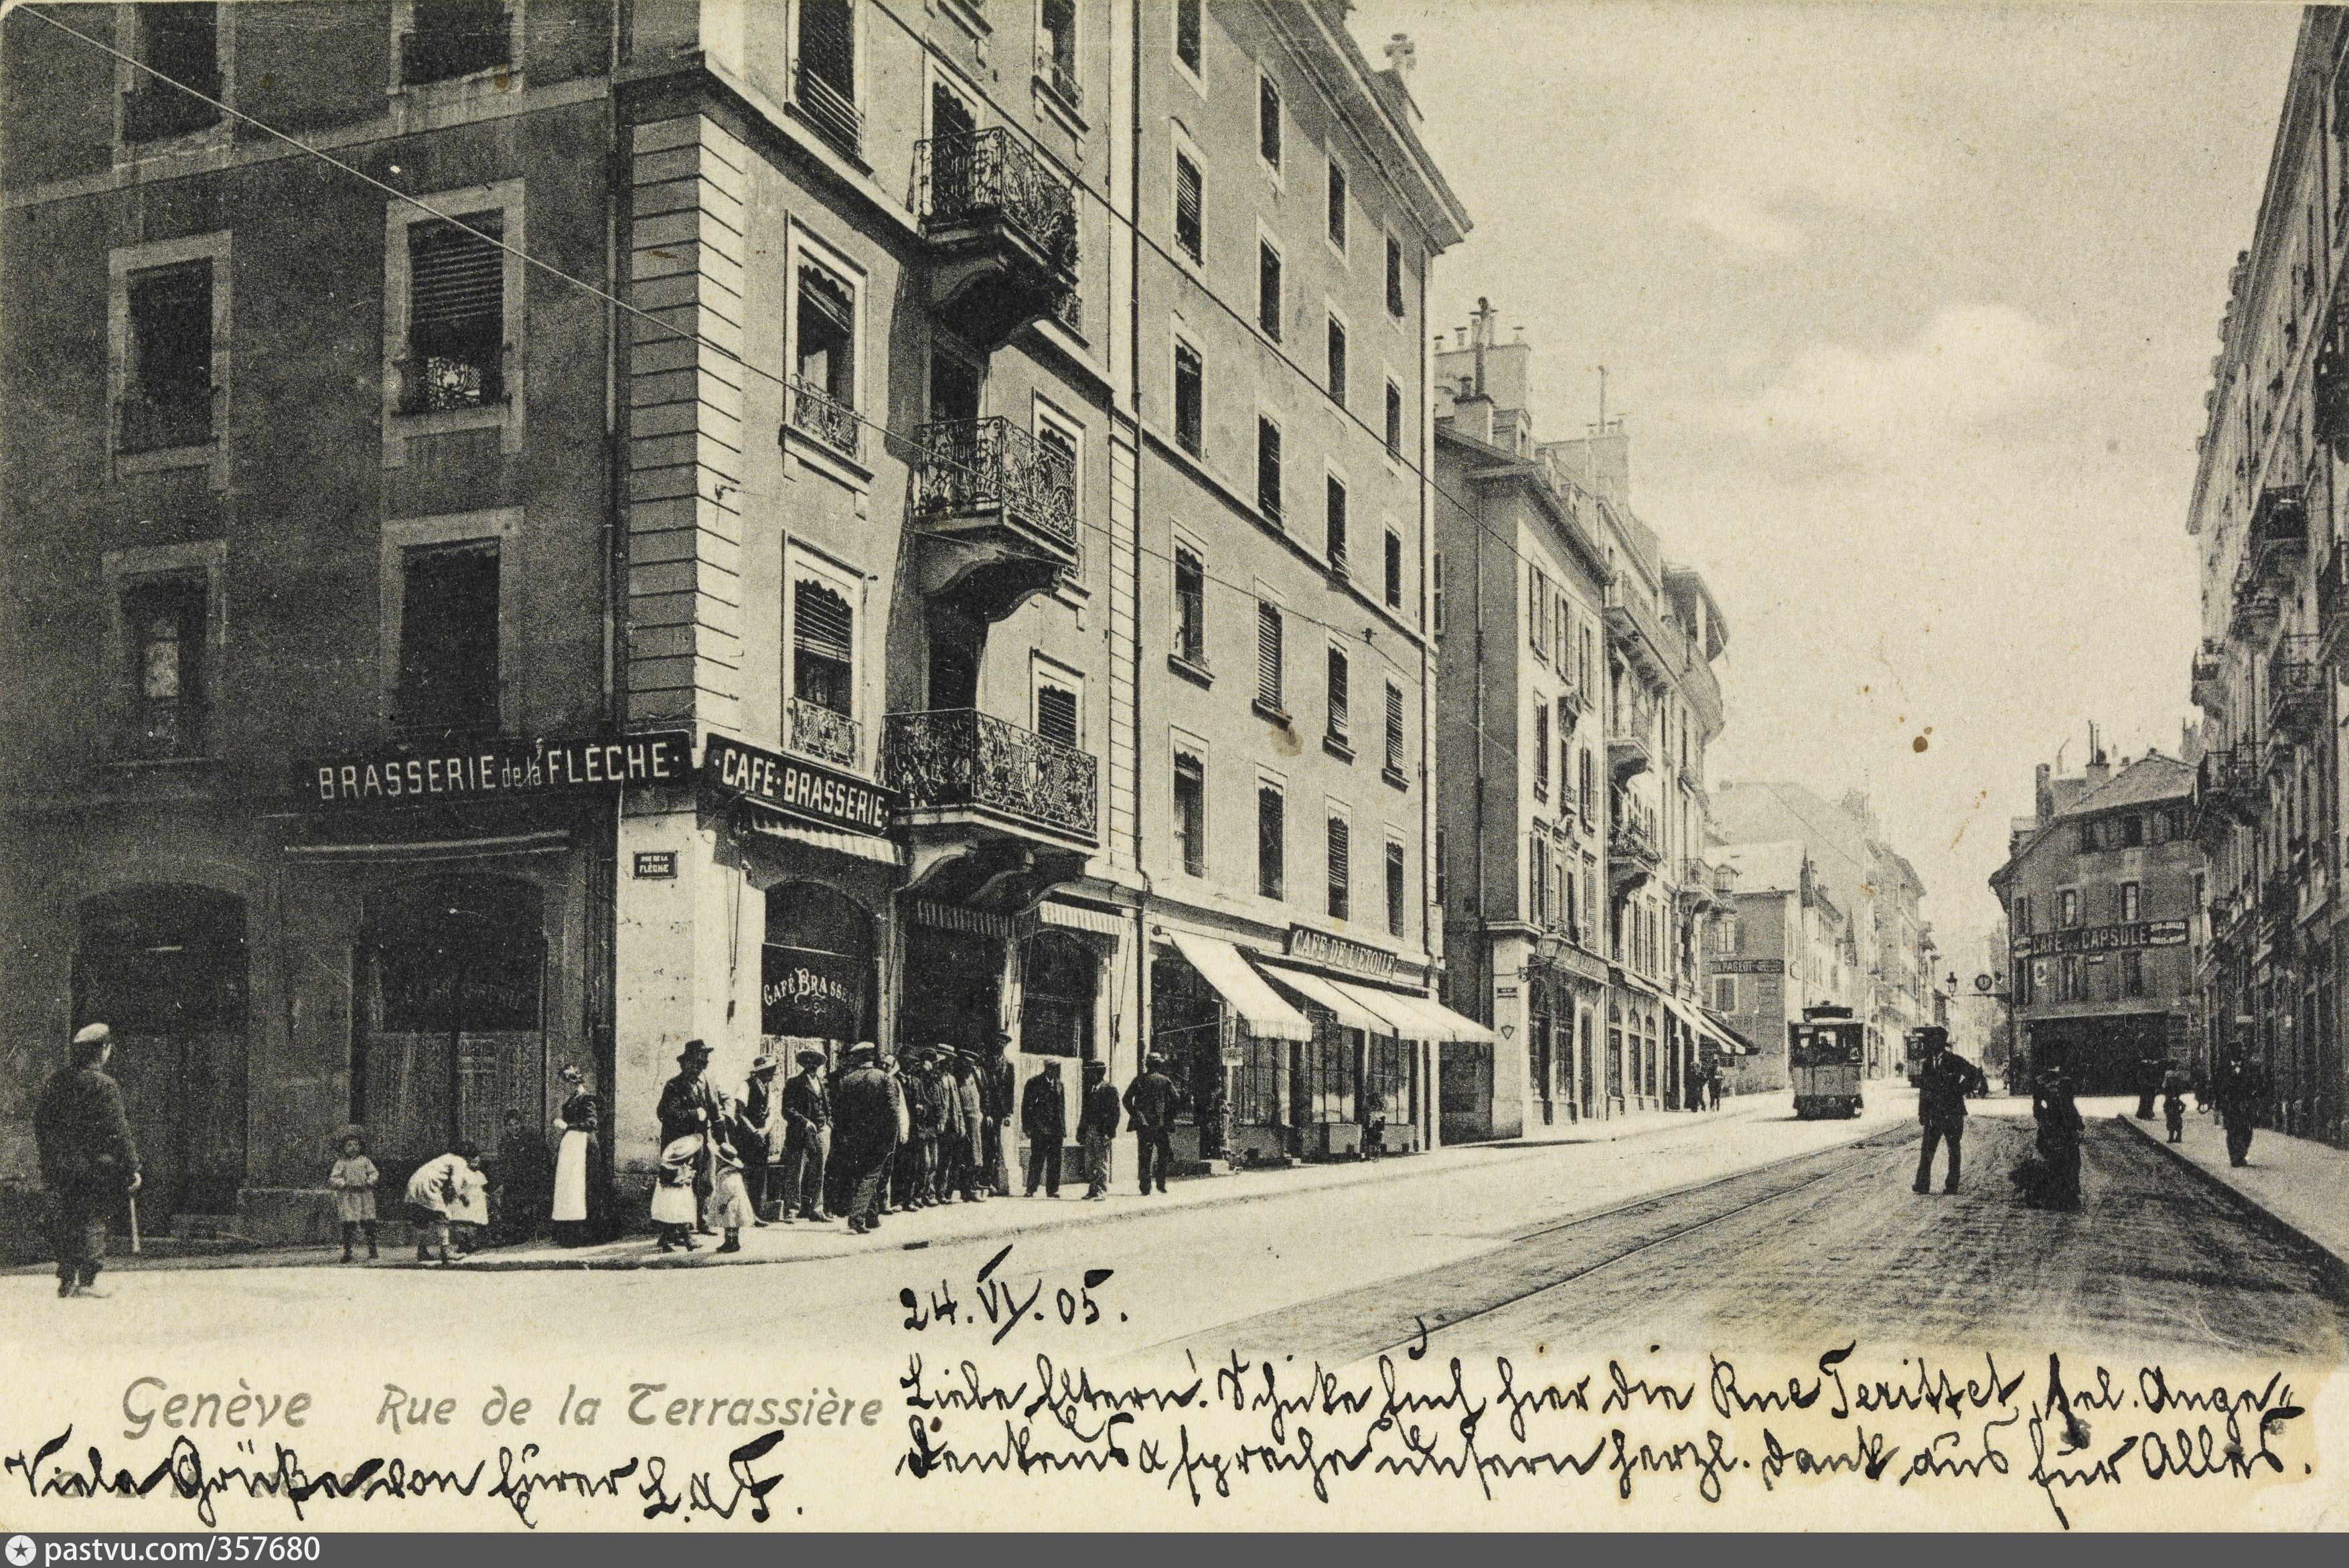 BRASSERIE de la FLÈCHE
CAFÉ·BRASSERIE
RUE DE LA
FLÈCHE
CAFÉ BRASSE
CAFÉ DE L'ETOILE
PAGEOT
CAFÉ CAPSULE
24. VI. 05.
Genève Rue de la Terrassière
Liebe Eltern! Schike Euch hier die Rue Terittet, sel. Ange-
denkens & spreche unsern herzl. Dank aus für Alles.
Viele Grüße von Eurer L. & F.
pastvu.com/357680